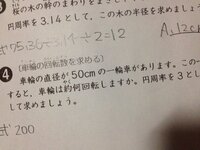 桜の木の幹のまわりをま
周率を3.14として、この木の半径を求めましょう
75.36÷3.14÷2=12
A.12c
4 〔車輪の回転数を求める〕
車輪の直径が50cmの一輪車があります。この一
すると、車輪は約何回転しますか。円周率を3と
して求めましょう。
式 200